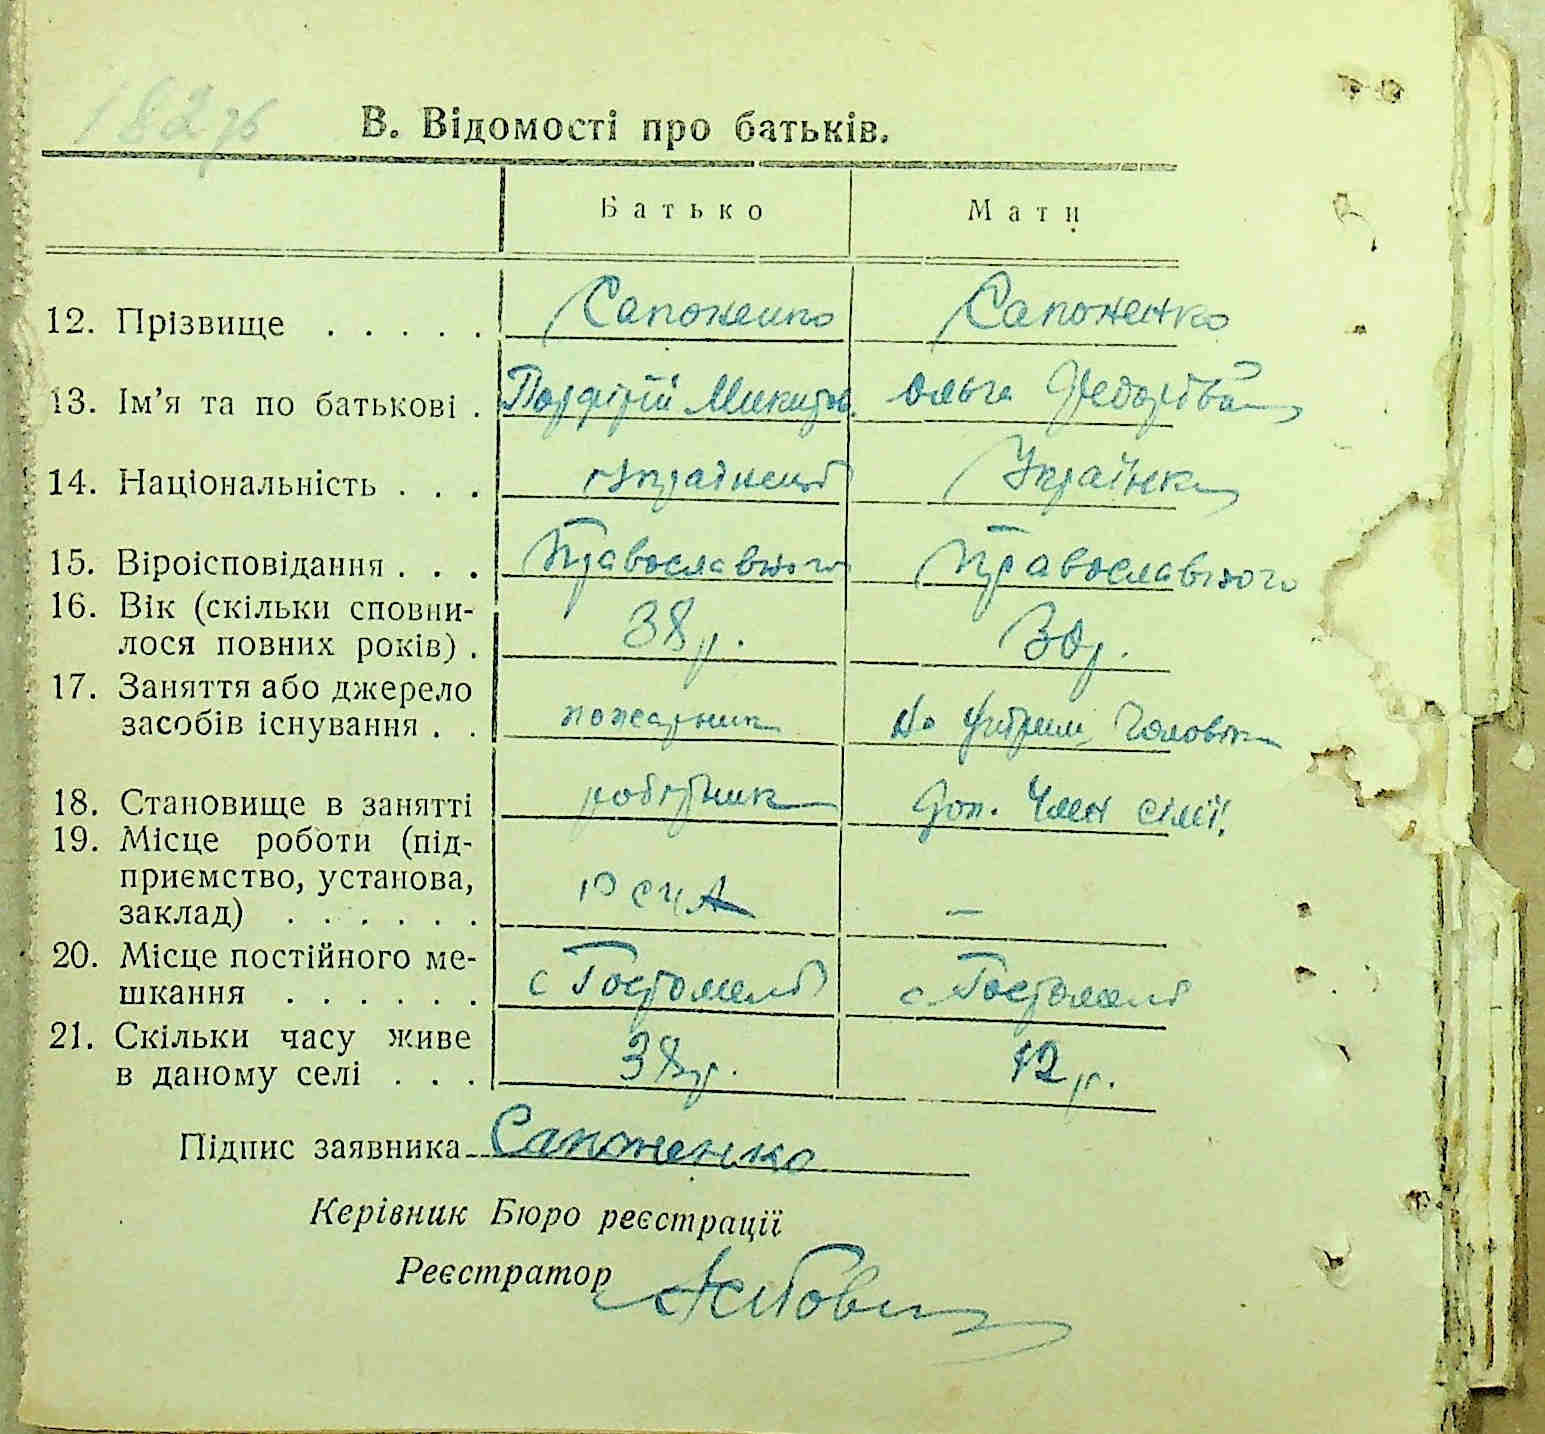 182 зв
В. Відомості про батьків.
Батько Мати
12. Прізвище . . . . . Сапоненко Сапоненко
13. Ім’я та по батькові . Порфірій Микит. Ольга Федорівна
14. Національність . . . Українець Українка
15. Віроісповідання . . . Православного Православного
16. Вік (скільки сповни-
лося повних років) . 38 р. 30 р.
17. Заняття або джерело
засобів існування . . пожарник На утрим. Чоловіка
18. Становище в занятті робітник Доп. Член сімї.
19. Місце роботи (під-
приємство, установа,
заклад) . . . . . . —
20. Місце постійного ме-
шкання . . . . . . с Гостомель с Гостомель
21. Скільки часу живе
в даному селі . . . 38 р. 12 р.
Підпис заявника Сапоненко
Керівник Бюро реєстрації
Реєстратор